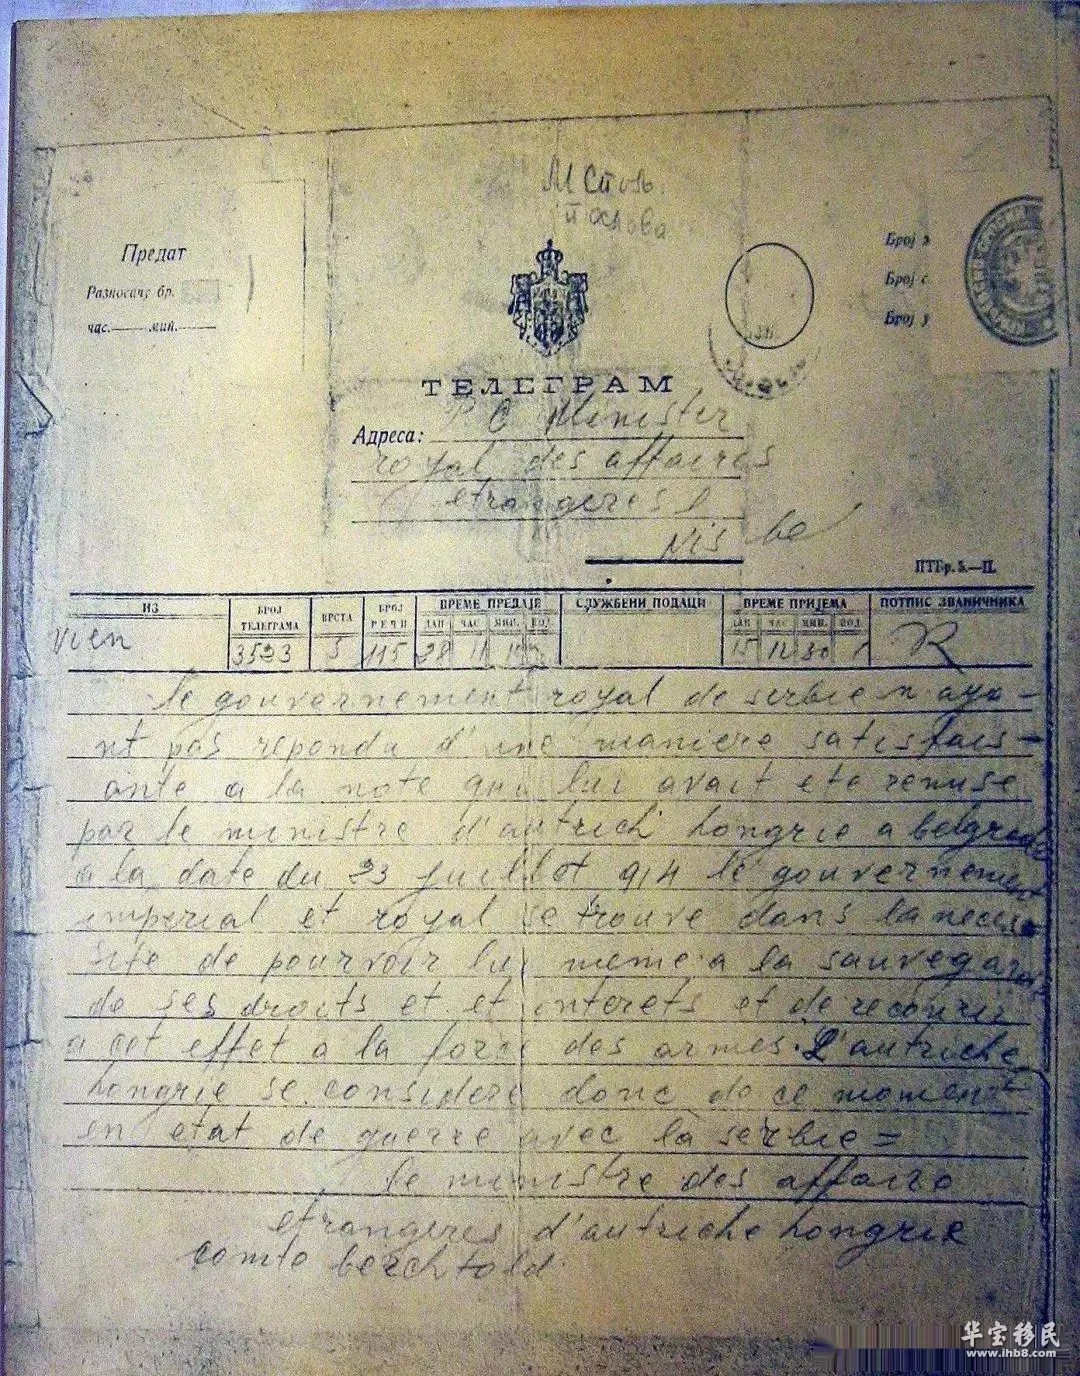 М Спољ.
послова
Предат
Разносачу бр.
час.—— мин.——
Број
Број с
Број у
ТЕЛЕГРАМ
Адреса: P. C Minister
royal des affaires
etrangeres
Nis
ПТТ-р. 5.—II.
ИЗ
БРОЈ ТЕЛЕГРАМА
ВРСТА
БРОЈ РЕЧИ
ВРЕМЕ ПРЕДАЈЕ
СЛУЖБЕНИ ПОДАЦИ
ВРЕМЕ ПРИЈЕМА
ПОТПИС ЗВАНИЧНИКА
ДАН ЧАС МИН. ДАН ЧАС МИН.
Vien 3523 5 115 28 11 15 12 30 R
le gouvernement royal de serbie n ayo-
nt pas repondu d'une maniere satisfais-
ante a la note qui lui avait ete remise
par le ministre d'autrich hongrie a belgrade
a la date du 23 juillet 914 le gouvernement
imperial et royal se trouve dans la neces-
site de pourvoir lui meme a la sauvegar
de ses droits et et interets et de recourir
a cet effet a la force des armes. L'autriche
hongrie se considere donc de ce moment
en etat de guerre avec la serbie =
le ministre des affaire
etrangeres d'autriche hongrie
comte berchtold.
华宝移民
www.ihb8.com